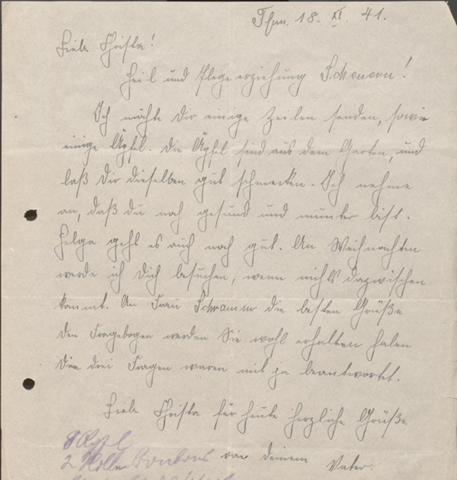 Thm. 18. XI. 41.
Liebe Christa!
Heil und Pflegeerziehung Scheuern!
Ich möchte Dir einige Zeilen senden, sowie
einige Äpfel. Die Äpfel sind aus dem Garten, und
laß Dir dieselben gut schmecken. Ich nehme
an, daß du noch gesund und munter bist.
Helga geht es auch noch gut. An Weihnachten
werde ich Dich besuchen, wenn nichts dazwischen
kommt. An Frau Schramm die besten Grüße
Den Fragebogen werden Sie wohl erhalten haben
Die drei Fragen waren mit ja beantwortet.
Liebe Christa für heute herzliche Grüße
von deinem Vater.
8 Äpfel
2 Rollen Bonbons